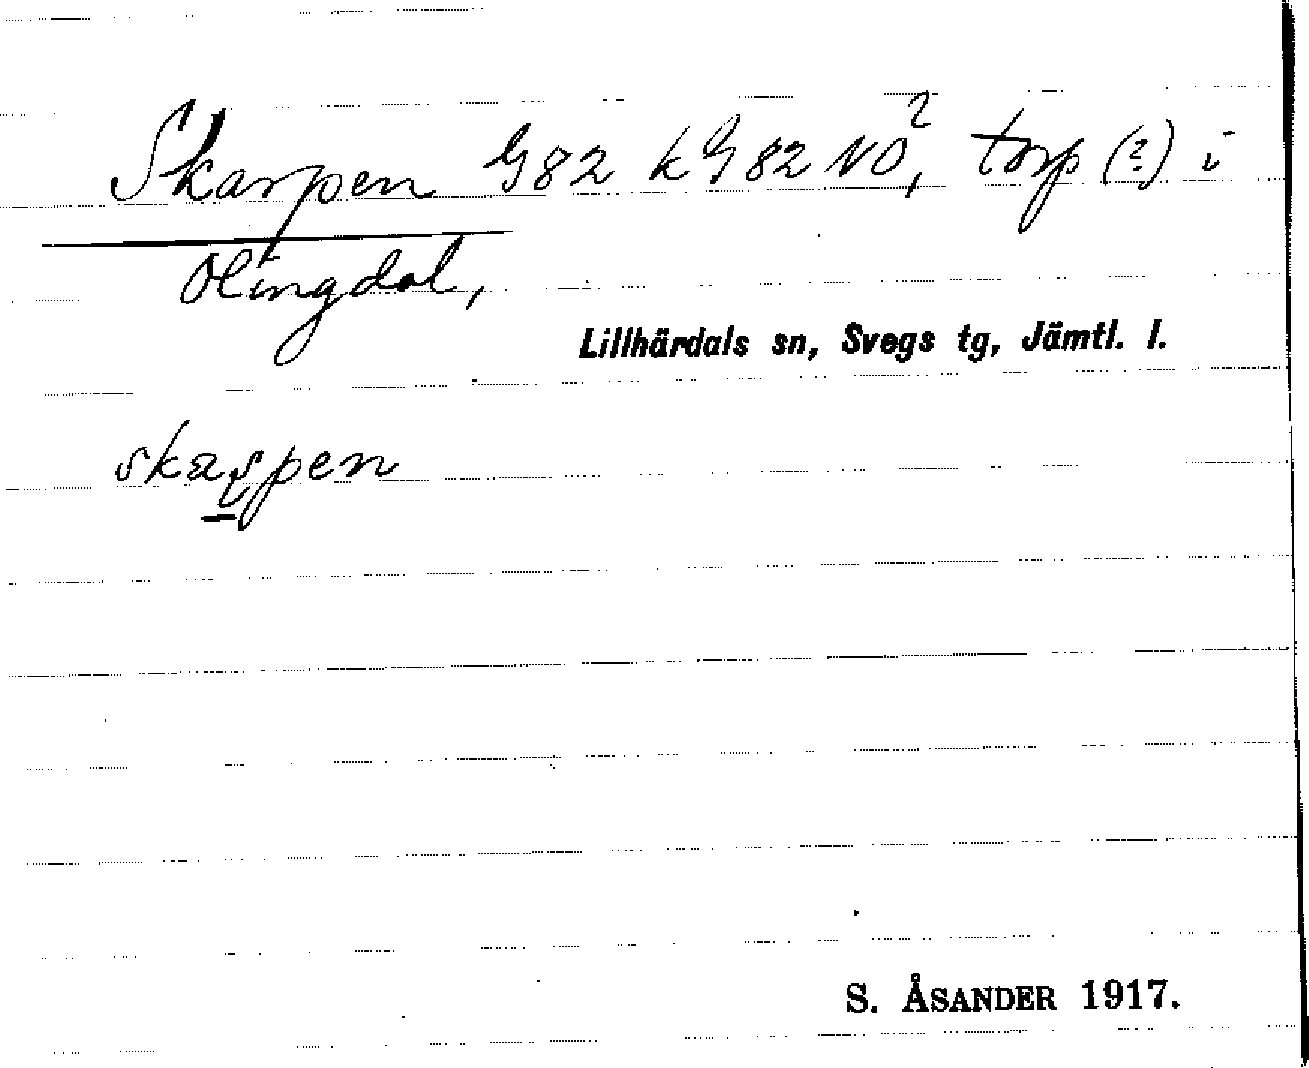 Skarpen G82 kG82 NO², torp (?) i
Olingdal,
Lillhärdals sn, Svegs tg, Jämtl. l.
S. ÅSANDER 1917.